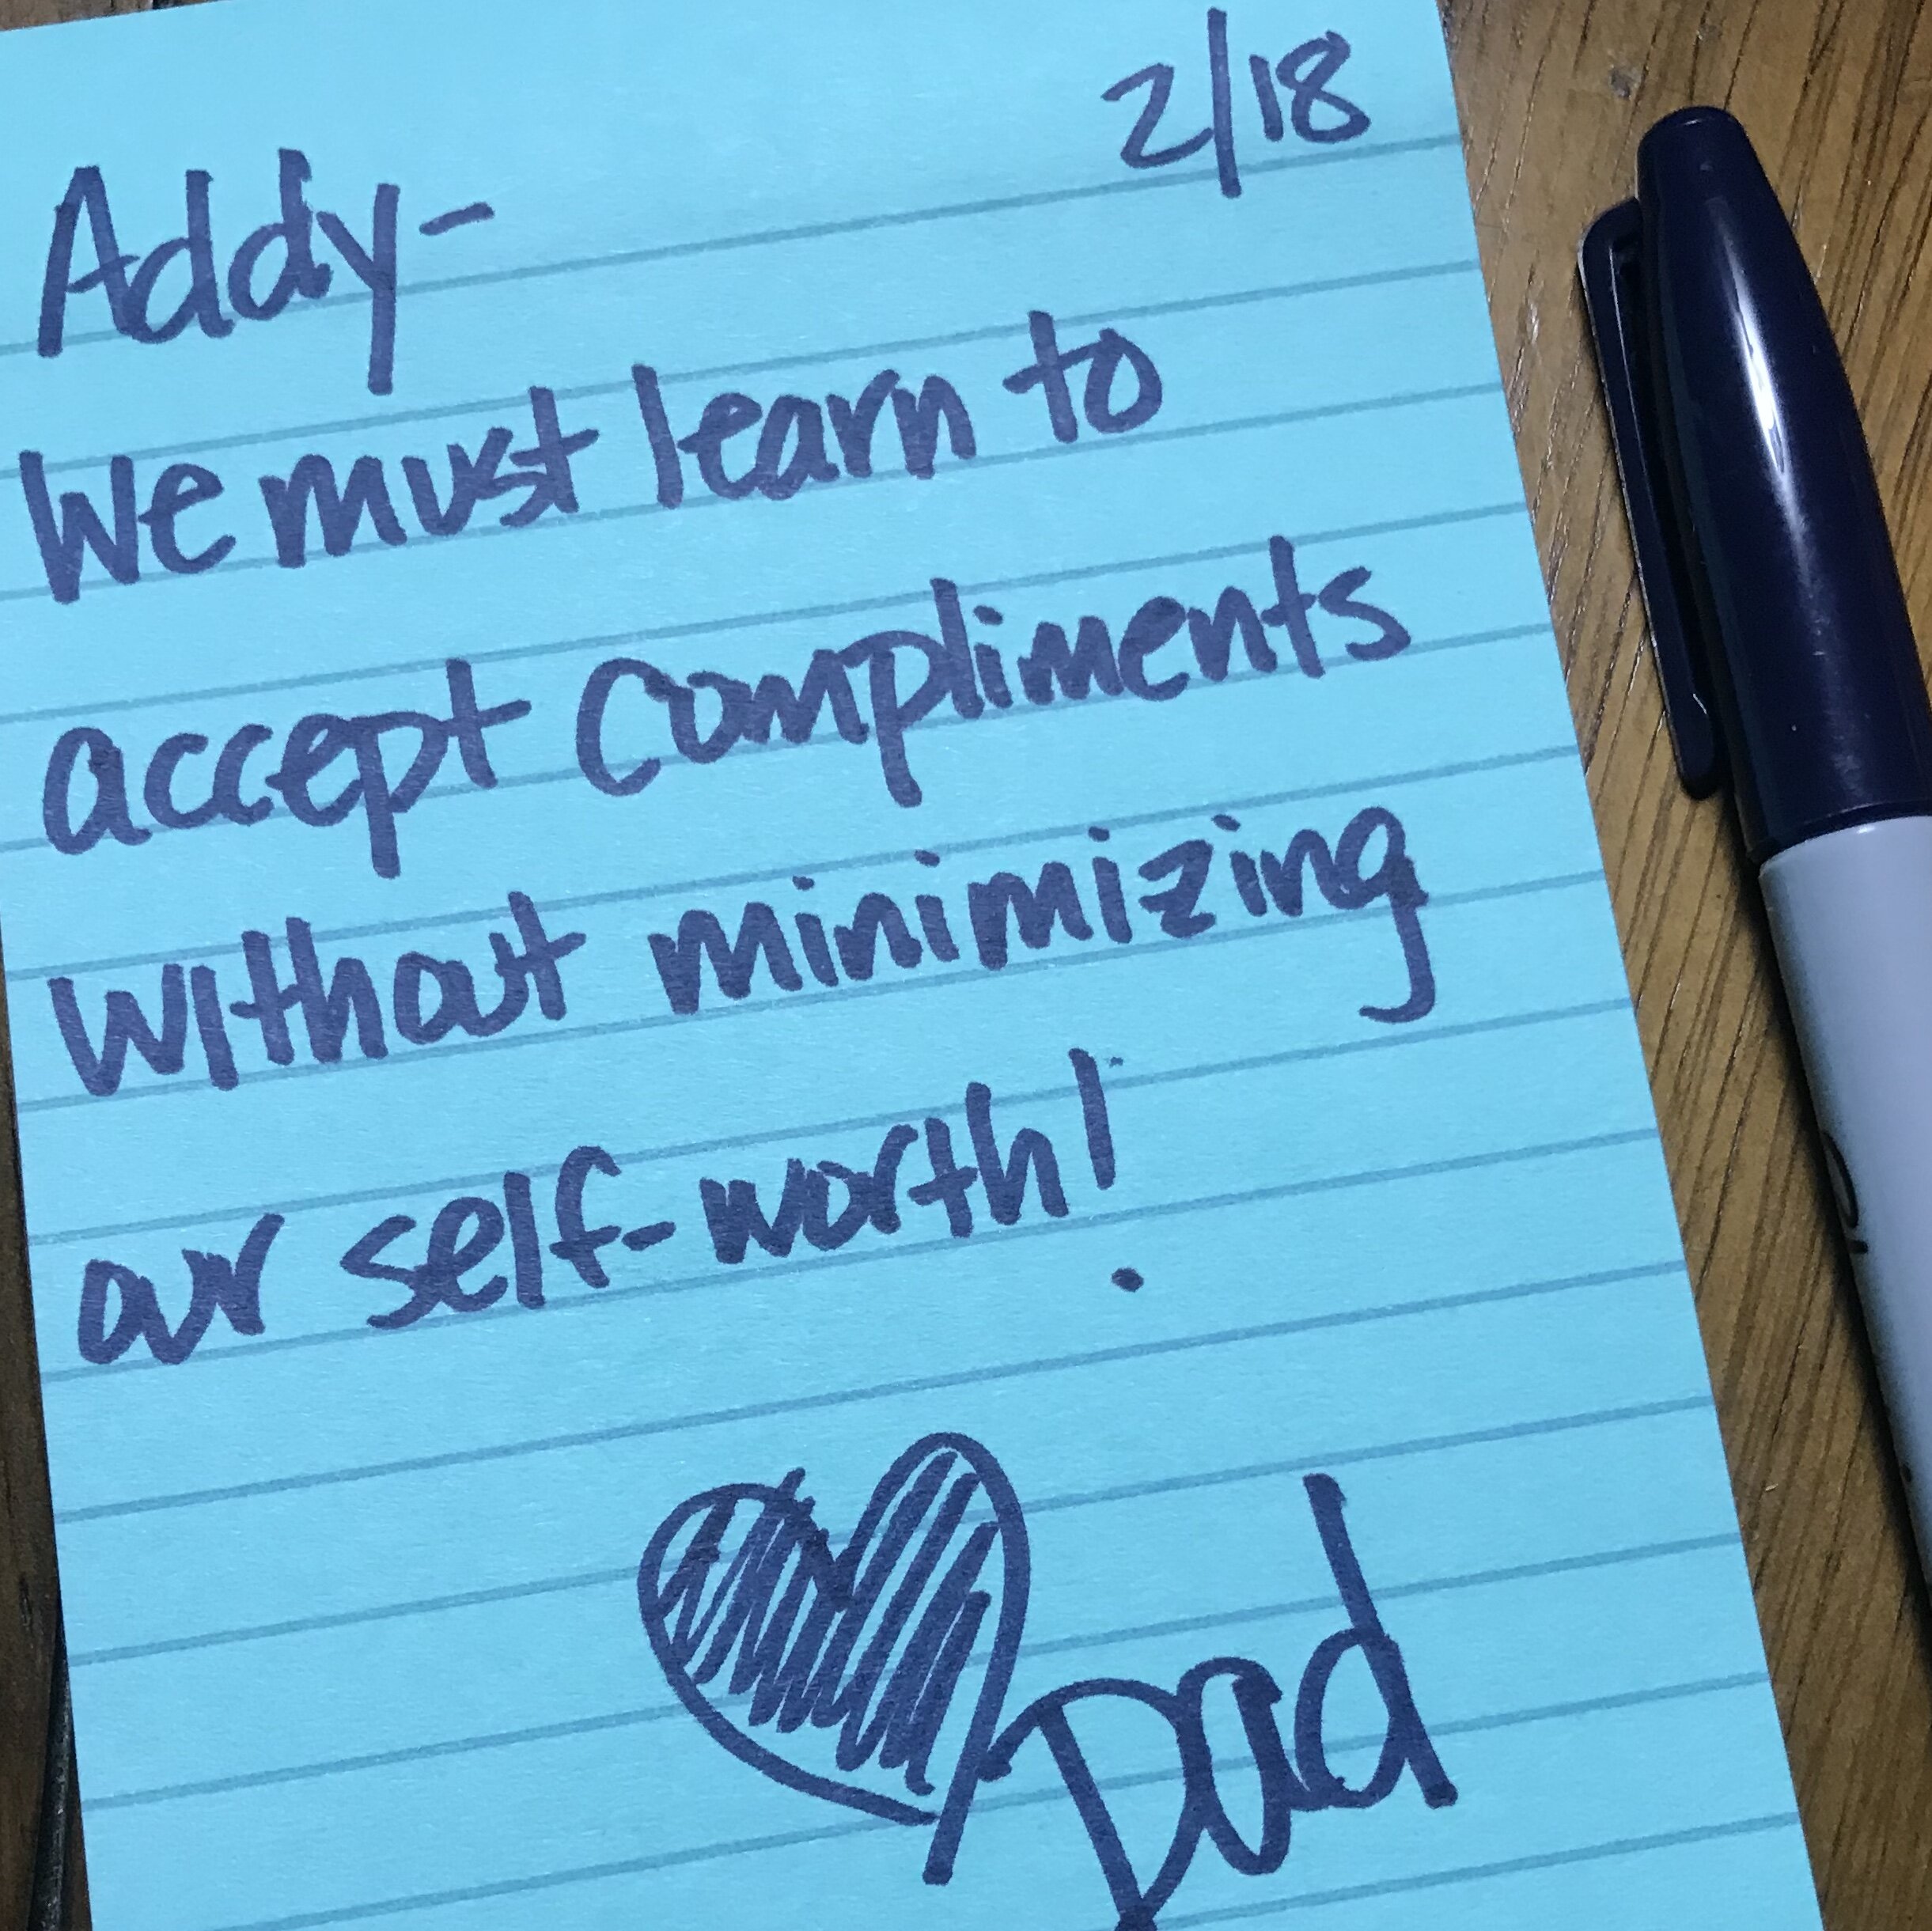 2/18
Addy-
We must learn to
accept compliments
without minimizing
our self-worth!
Dad